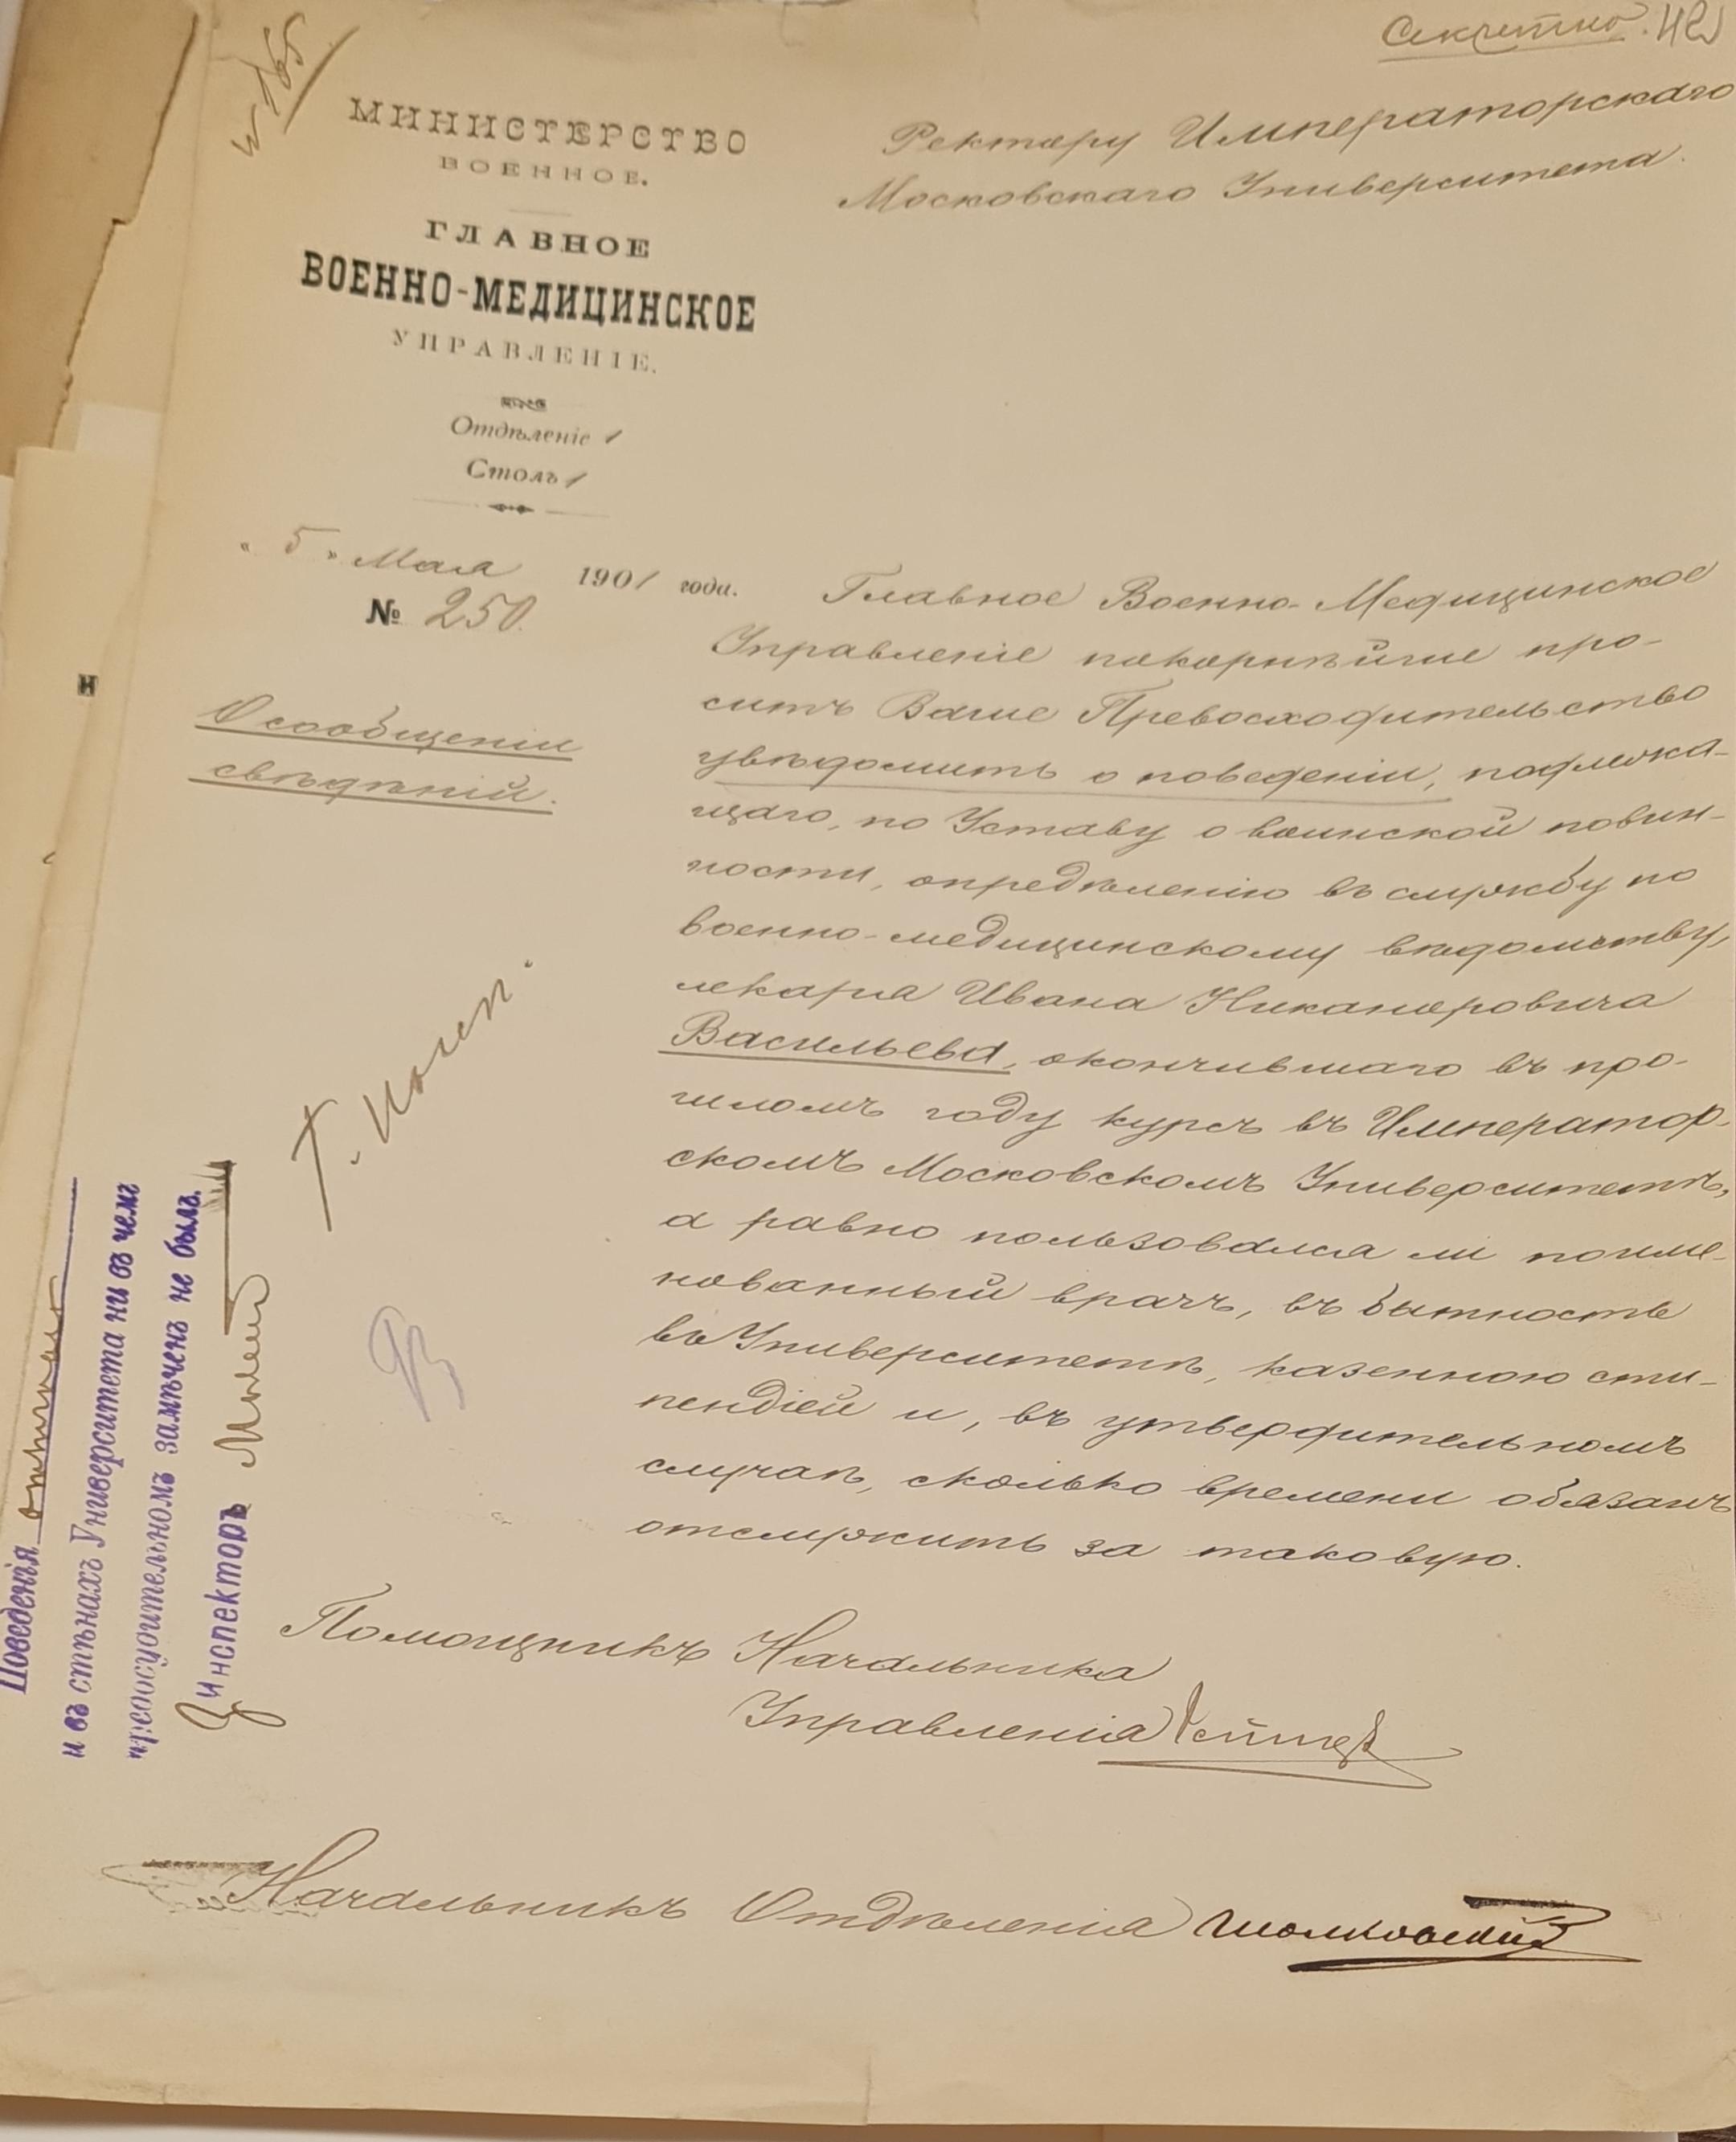 Секретно. 42
№ 165
МИНИСТЕРСТВО
ВОЕННОЕ.
ГЛАВНОЕ
ВОЕННО-МЕДИЦИНСКОЕ
УПРАВЛЕНІЕ.
Отдѣленіе 1
Столъ 1
„ 5 „ Мая 1901 года.
№ 250.
О сообщеніи
свѣдѣній.
Ректору Императорскаго
Московскаго Университета.
Главное Военно-Медицинское
Управленіе покорнѣйше про-
ситъ Ваше Превосходительство
увѣдомить о поведеніи, подлежа-
щаго, по Уставу о воинской повин-
ности, опредѣленію въ службу по
военно-медицинскому вѣдомству,
лекаря Ивана Никаноровича
Васильева, окончившаго въ про-
шломъ году курсъ въ Император-
скомъ Московскомъ Университетѣ,
а равно пользовался ли поиме-
нованный врачъ, въ бытность
въ Университетѣ, казенною сти-
пендіей и, въ утвердительномъ
случаѣ, сколько времени обязанъ
отслужить за таковую.
Помощникъ Начальника
Управленія
Начальникъ Отдѣленія
Поведенія отличнаго
и въ стѣнахъ Университета ни въ чемъ
предосудительномъ замѣченъ не былъ.
Инспекторъ
и